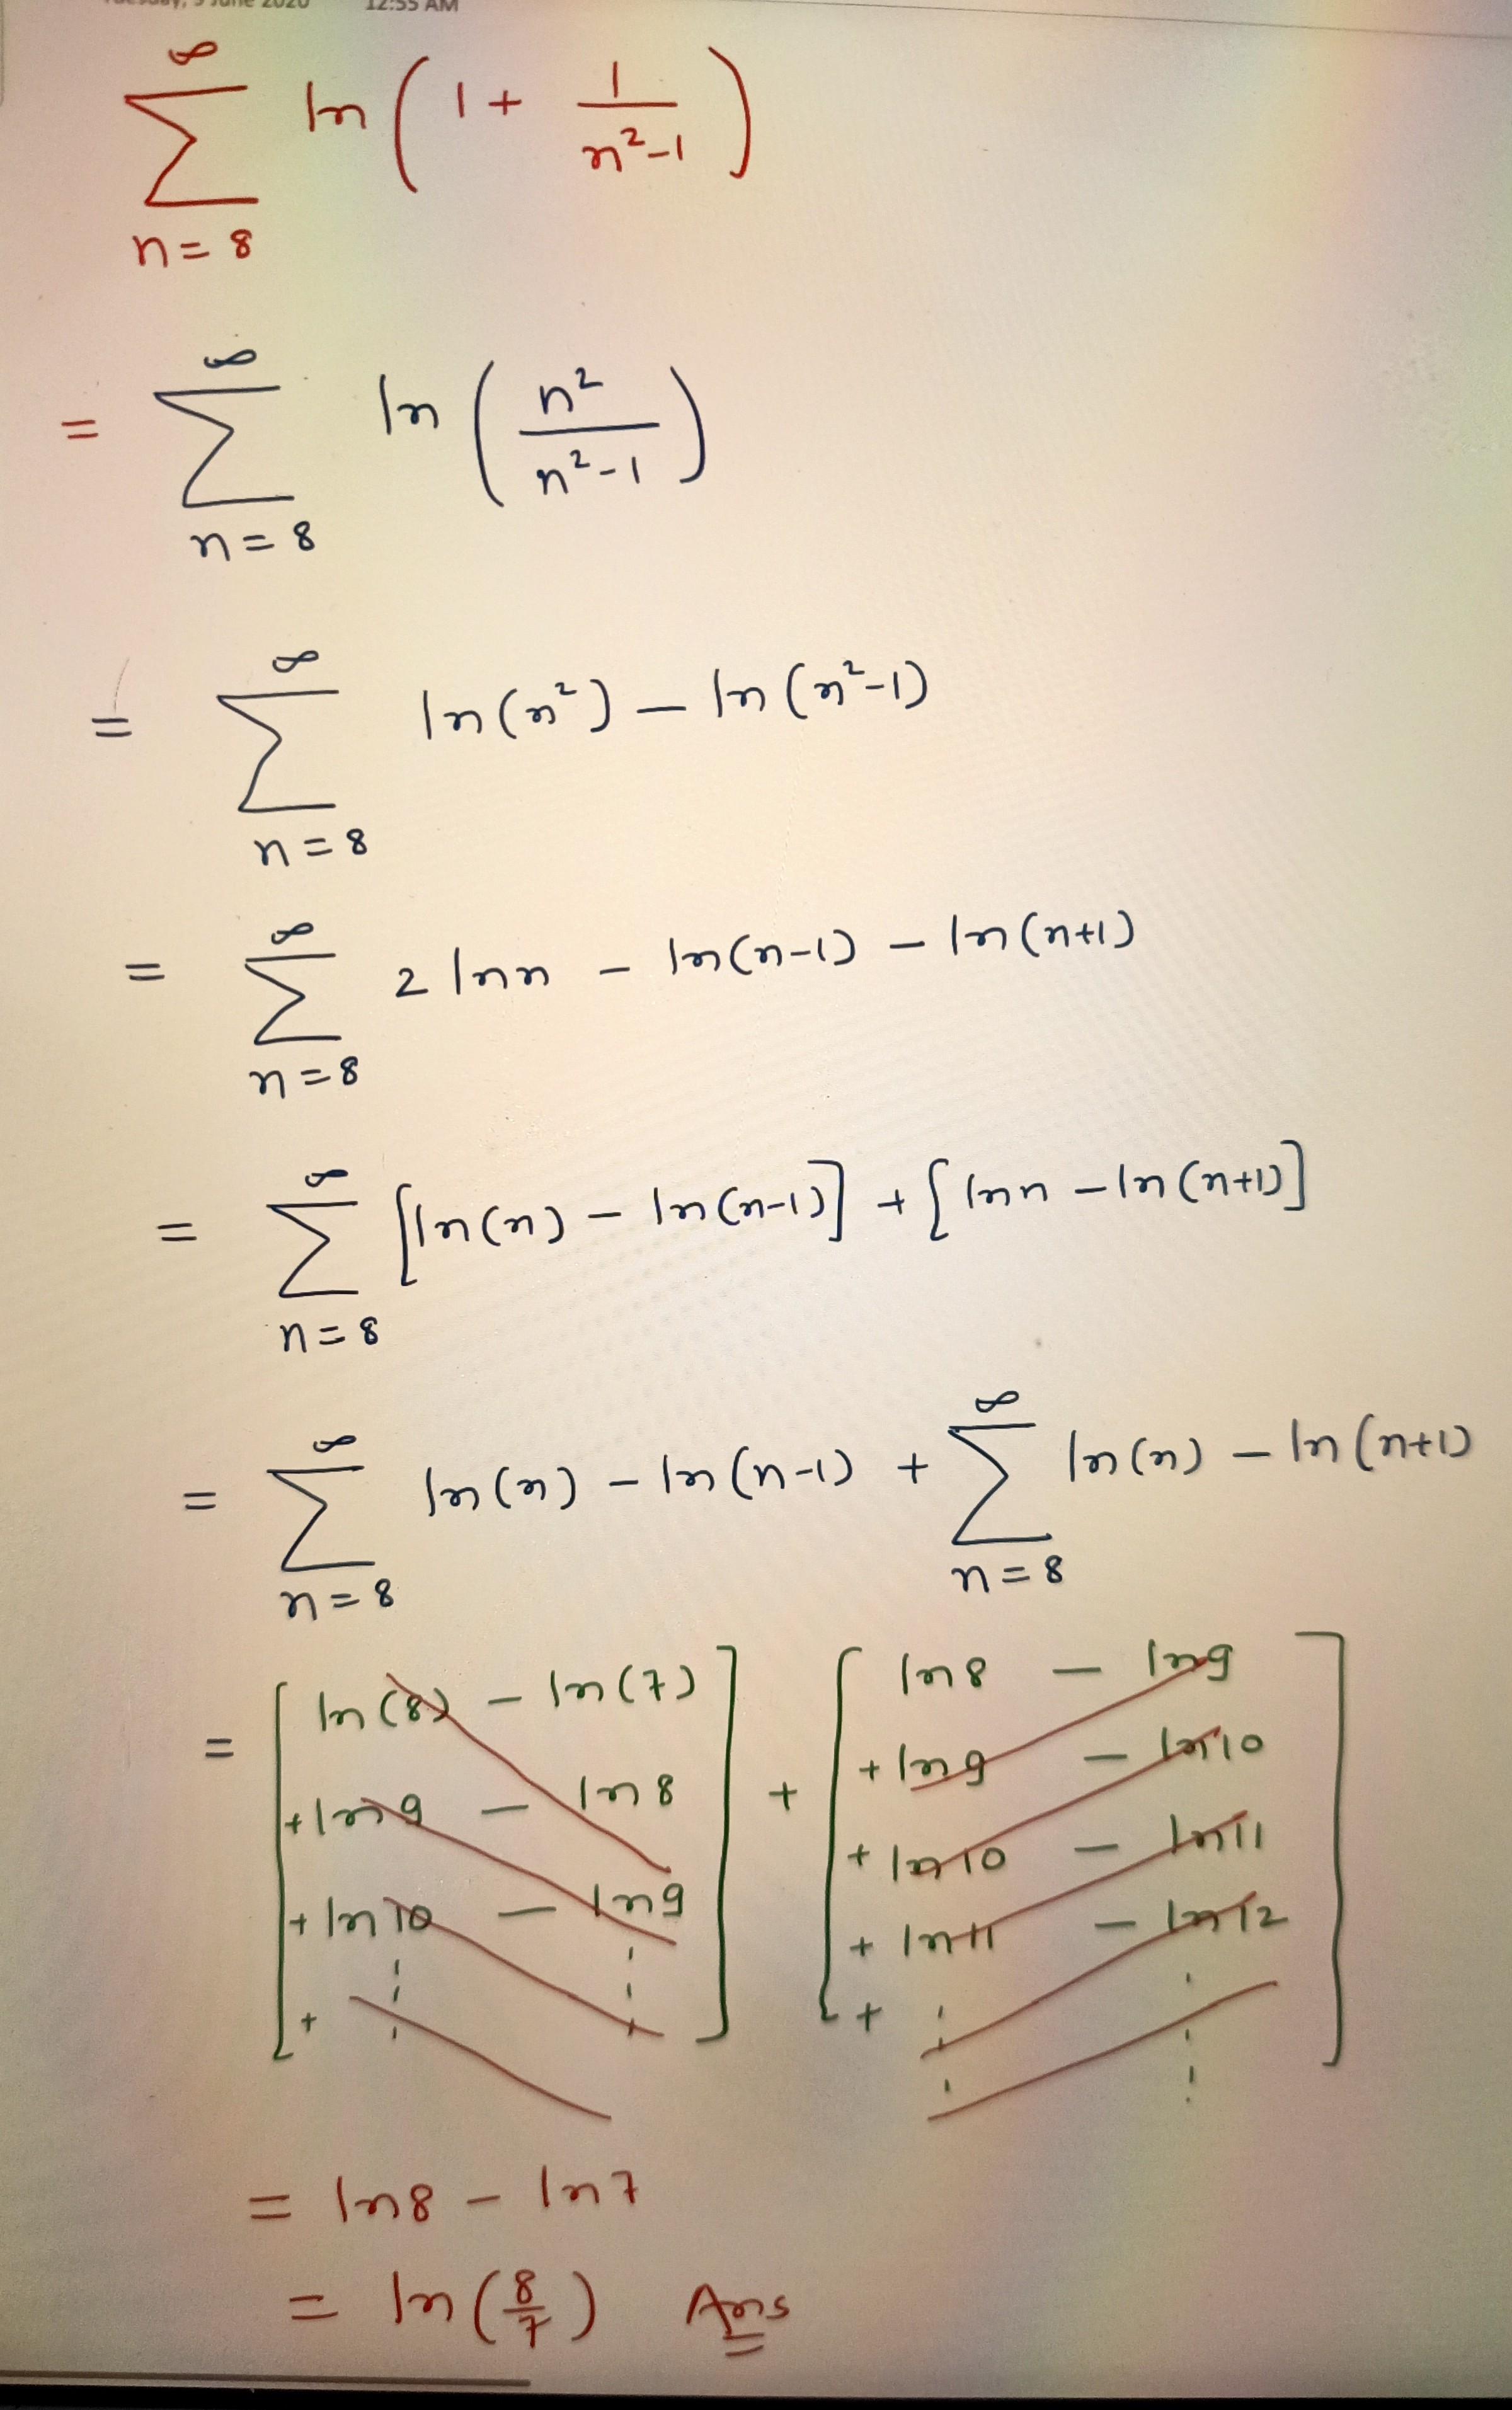 Tuesday, 9 June 2020 12:55 AM
∞
∑ ln ( 1 + 1/(n²-1) )
n = 8
∞
= ∑ ln ( n²/(n²-1) )
n = 8
∞
= ∑ ln(n²) - ln(n²-1)
n = 8
∞
= ∑ 2 ln n - ln(n-1) - ln(n+1)
n = 8
∞
= ∑ [ln(n) - ln(n-1)] + [ln n - ln(n+1)]
n = 8
∞ ∞
= ∑ ln(n) - ln(n-1) + ∑ ln(n) - ln(n+1)
n = 8 n = 8
= [ ln(8) - ln(7) ] + [ ln 8 - ln 9 ]
+ ln 9 - ln 8 + ln 9 - ln 10
+ ln 10 - ln 9 + ln 10 - ln 11
+ + ln 11 - ln 12
+
= ln 8 - ln 7
= ln (8/7) Ans